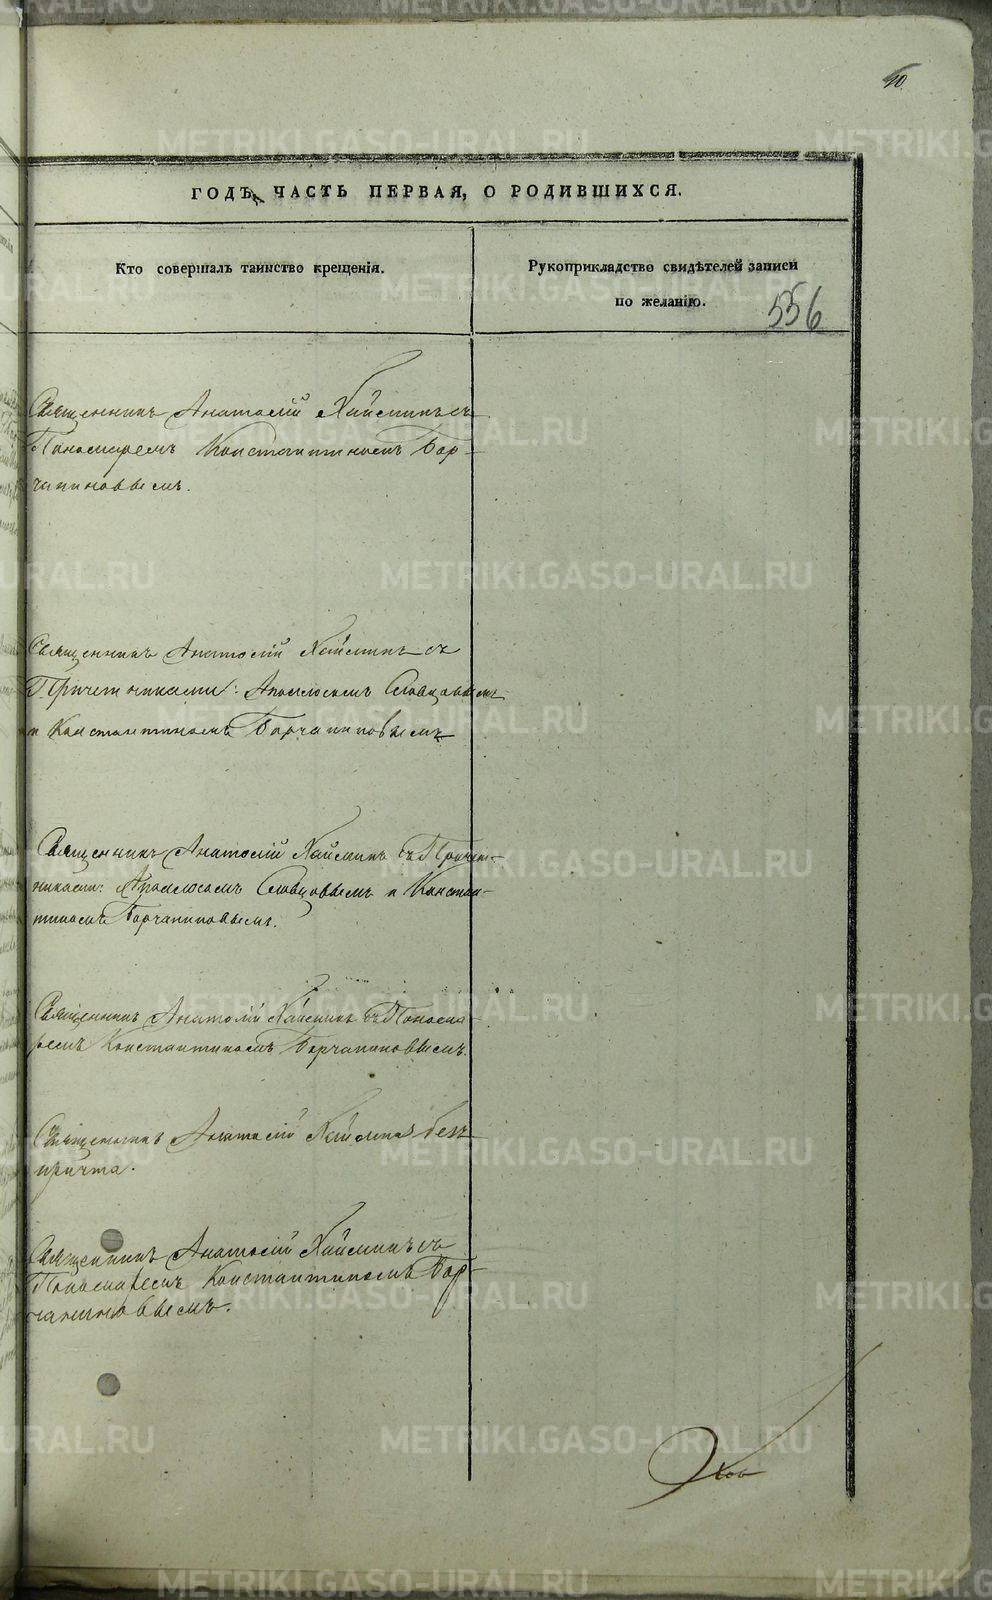 10
ГОДЪ, ЧАСТЬ ПЕРВАЯ, О РОДИВШИХСЯ.
Кто совершалъ таинство крещенія.
Рукоприкладство свидѣтелей записи
по желанію.
556
Священникъ Анатолій Хаймикъ съ
Пономаремъ Константиномъ Бор-
чаниновымъ.
Священникъ Анатолій Хаймикъ съ
Причетниками: Аполлосомъ Словцовымъ
и Константиномъ Борчаниновымъ
Священникъ Анатолій Хаймикъ съ Причет-
никами: Аполлосомъ Словцовымъ и Констан-
тиномъ Борчаниновымъ.
Священникъ Анатолій Хаймикъ съ Понома-
ремъ Константиномъ Борчаниновымъ.
Священникъ Анатолій Хаймикъ безъ
причта.
Священникъ Анатолій Хаймикъ съ
Пономаремъ Константиномъ Бор-
чаниновымъ.
METRIKI.GASO-URAL.RU